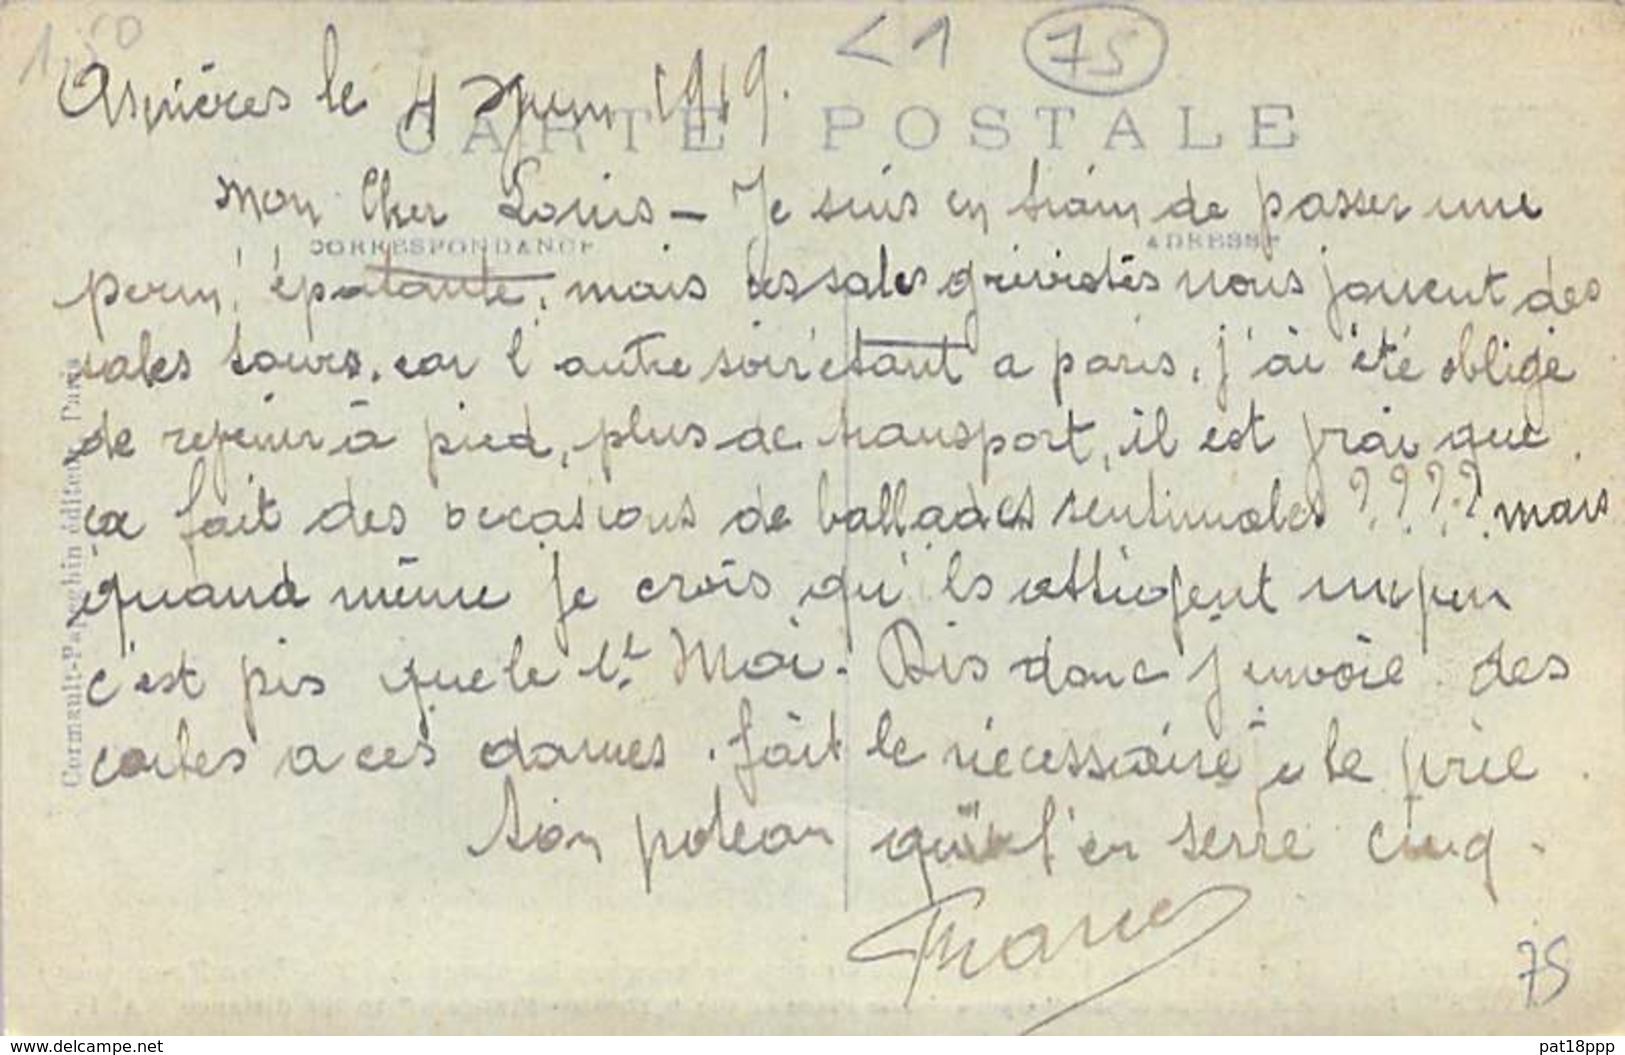 1,50
<1 75
Asnières le 4 Juin 1919.
CARTE POSTALE
Mon Cher Louis - Je suis en train de passer une
CORRESPONDANCE ADRESSE
perm' épatante, mais les sales grévistes nous jouent des
sales tours, car l'autre soir étant a paris, j'ai été obligé
de revenir à pied, plus de transport, il est vrai que
ca fait des occasions de ballades sentimales ???? mais
quand même je crois qu'ils attigent un peu
c'est pis que le 1er Mai. Dis donc j'envoie des
cartes a ces dames. fait le nécessaire je te prie
ton poteau qui t'en serre cinq.
75
Cormault-Papeghin éditeur, Paris
www.delcampe.net
pat18ppp